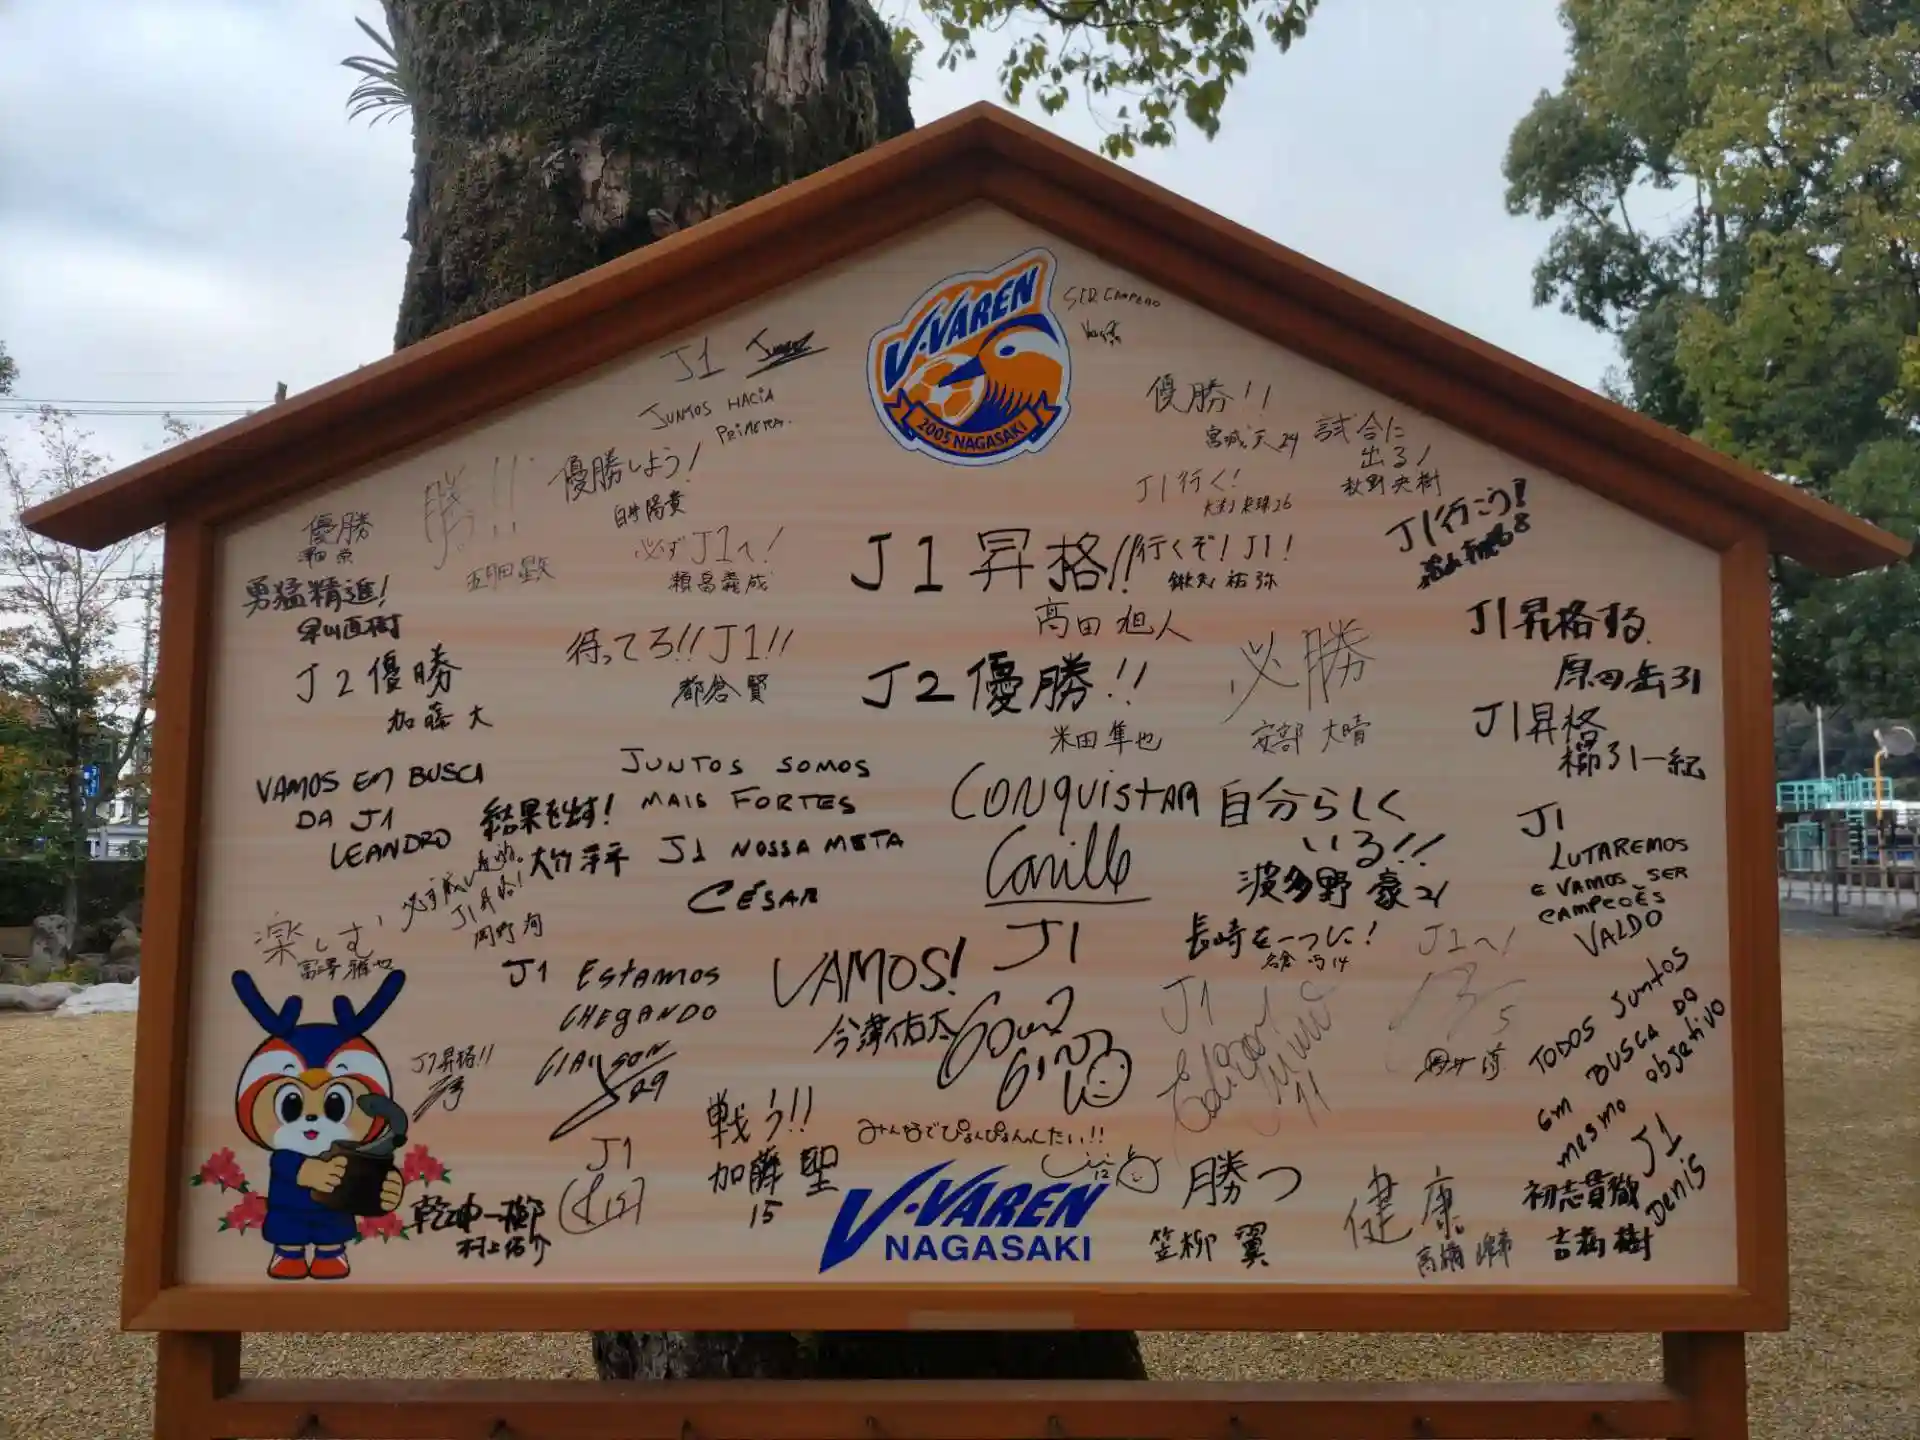 V·VAREN
2005 NAGASAKI
SER CAMPEAO
J1
JUNTOS HACIA
PRIMERA.
優勝!!
宮城 天 29
試合に
出る!
秋野央樹
勝つ!!
優勝しよう!
白井陽貴
J1行く!
J1行こう!
8
優勝
澤田 崇
必ずJ1へ!
瀬畠義成
J1昇格!!
高田 旭人
行くぞ!J1!
鍬先 祐弥
勇猛精進!
早山直樹
J1昇格する.
原田岳 31
待ってろ!!J1!!
都倉賢
J2優勝
加藤 大
J2優勝!!
米田隼也
必勝
安部 大晴
J1昇格
櫛引一紀
VAMOS EM BUSCA
DA J1
LEANDRO
結果を出す!
大竹洋平
JUNTOS SOMOS
MAIS FORTES
J1 NOSSA META
CÉSAR
CONQUISTAR
Carille
自分らしく
いる!!
波多野 豪 21
J1
LUTAREMOS
E VAMOS SER
CAMPEOES
VALDO
J1昇格!
岡野 洵
楽しむ
富澤雅也
J1 ESTAMOS
CHEGANDO
CLAYSON
29
VAMOS!
今津佑太
J1
長崎を一つに!
名倉 巧 14
J1へ!
5
J1
Edigar Junio
11
TODOS JUNTOS
EM BUSCA DO
MESMO OBJETIVO
J1
DENIS
J1昇格!!
戦う!!
加藤 聖
15
みんなでぴょんぴょんしたい!!
J1
勝つ
笠柳 翼
健康
初志貫徹
吉岡樹
乾坤一擲
村上佑介
V·VAREN
NAGASAKI